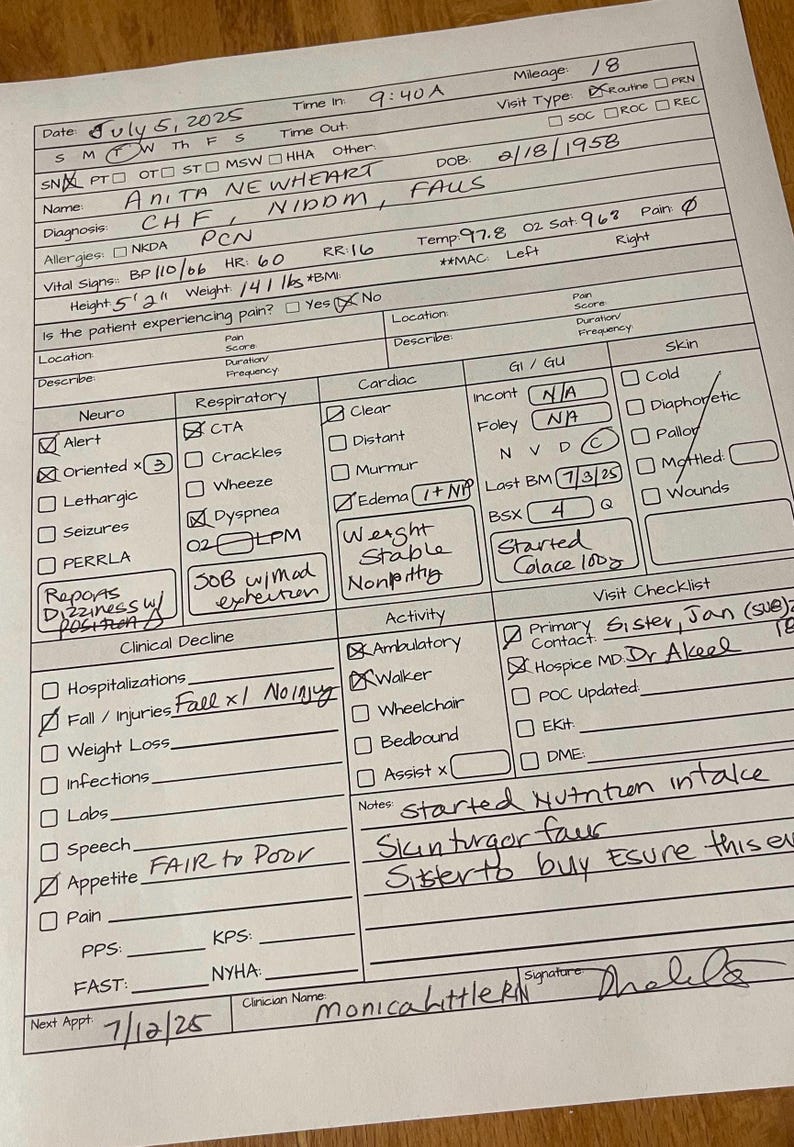 Date: July 5, 2025 Time In: 9:40A Mileage: 18
S M T W Th F S Time Out: Visit Type: Routine PRN
SN PT OT ST MSW HHA Other: SOC ROC REC
Name: ANITA NEWHEART DOB: 2/18/1958
Diagnosis: CHF, NIDDM, FALLS
Allergies: NKDA PCN
Vital Signs: BP 110/66 HR: 60 RR: 16 Temp: 97.8 O2 Sat: 96% Pain: Ø
Height: 5'2" Weight: 141 lbs *BMI: **MAC: Left Right
Is the patient experiencing pain? Yes No
Location: Pain Score: Location: Pain Score:
Describe: Duration/Frequency: Describe: Duration/Frequency:
Neuro
Alert
Oriented x 3
Lethargic
Seizures
PERRLA
Reports
Dizziness w/
position Δ
Respiratory
CTA
Crackles
Wheeze
Dyspnea
O2 LPM
SOB w/ Mod
Cardiac
Clear
Distant
Murmur
Edema 1+ NP
Weight
Stable
Nonpitting
GI / GU
Incont N/A
Foley N/A
N V D C
Last BM 7/3/25
BSX 4 Q
Started
Colace 100
Skin
Cold
Diaphoretic
Pallor
Mottled:
Wounds
Clinical Decline
Hospitalizations
Fall / Injuries Fall x 1 No injury
Weight Loss
Infections
Labs
Speech
Appetite FAIR to Poor
Pain
PPS: KPS:
FAST: NYHA:
Activity
Ambulatory
Walker
Wheelchair
Bedbound
Assist x
Visit Checklist
Primary Contact: Sister, Jan
Hospice MD: Dr Akeel
POC updated:
EKit:
DME:
Notes: Started Nutrition intake
Skin turgor
Sister to buy Esure this
Next Appt: 7/12/25 Clinician Name: Monica Little RN Signature: